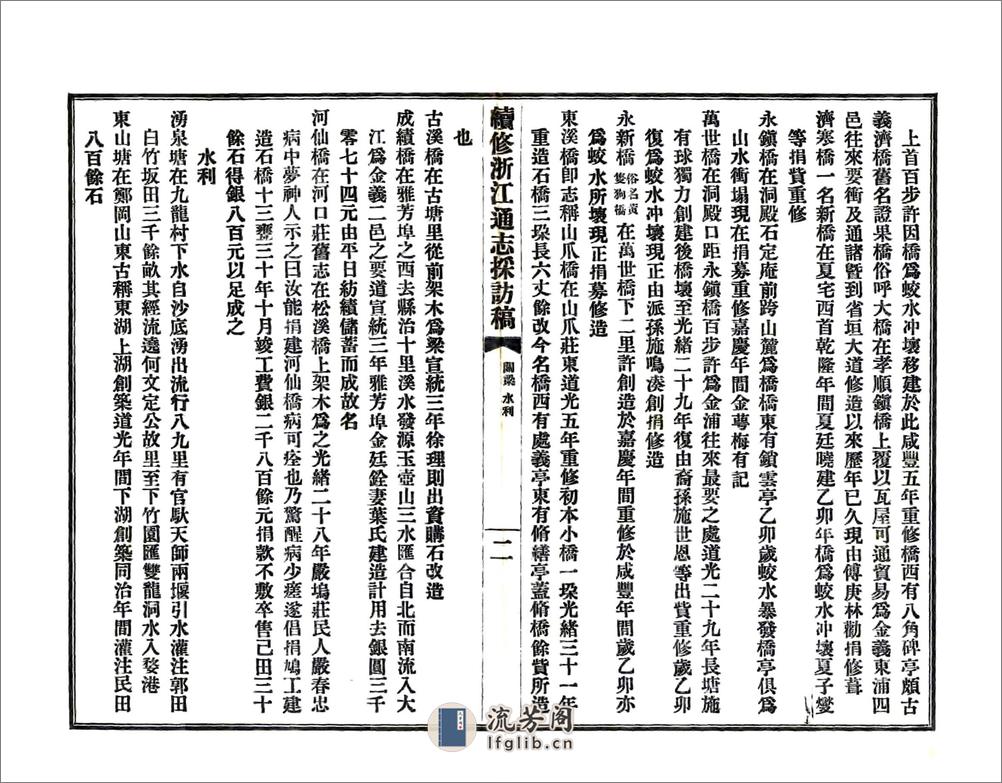 上首百步許因橋爲蛟水冲壞移建於此咸豐五年重修橋西有八角碑亭頗古
義濟橋舊名證果橋俗呼大橋在孝順鎭橋上覆以瓦屋可通貿易爲金義東浦四
邑往來要衝及通諸曁到省垣大道修造以來歷年已久現由傅庚林勸捐修葺
濟寒橋一名新橋在夏宅西首乾隆年間夏廷曉建乙卯年橋爲蛟水冲壞夏子燮
等捐貲重修
永鎭橋在洞殿石定庵前跨山麓爲橋橋東有鎖雲亭乙卯歲蛟水暴發橋亭俱爲
山水衝塌現在捐募重修嘉慶年間金蕚梅有記
萬世橋在洞殿口距永鎭橋百步許爲金浦往來最要之處道光二十九年長塘施
有球獨力創建後橋壞至光緒二十九年復由裔孫施世恩等出貲重修歲乙卯
復爲蛟水冲壞現正由派孫施鳴湊創捐修造
永新橋俗名黃隻狗橋在萬世橋下二里許創造於嘉慶年間重修於咸豐年間歲乙卯亦
爲蛟水所壞現正捐募修造
東溪橋卽志稱山爪橋在山爪莊東道光五年重修初本小橋一垜光緒三十一年
重造石橋三垜長六丈餘改今名橋西有處義亭東有脩繕亭蓋脩橋餘貲所造
續修浙江通志採訪稿
關梁 水利
二
也
古溪橋在古塘里從前架木爲梁宣統三年徐理則出資購石改造
成績橋在雅芳埠之西去縣治十里溪水發源玉壺山三水匯合自北而南流入大
江爲金義二邑之要道宣統三年雅芳埠金廷銓妻葉氏建造計用去銀圓三千
零七十四元由平日紡績儲蓄而成故名
河仙橋在河口莊舊志在松溪橋上架木爲之光緒二十八年嚴塢莊民人嚴春忠
病中夢神人示之曰汝能捐建河仙橋病可痊也乃驚醒病少瘥遂倡捐鳩工建
造石橋十三甕三十年十月竣工費銀二千八百餘元捐款不敷卒售己田三十
餘石得銀八百元以足成之
水利
湧泉塘在九龍村下水自沙底湧出流行八九里有官馱天師兩堰引水灌注郭田
白竹坂田三千餘畝其經流遶何文定公故里至下竹園匯雙龍洞水入婺港
東山塘在鄭岡山東古稱東湖上湖創築道光年間下湖創築同治年間灌注民田
八百餘石
流芳閣
lfglib.cn